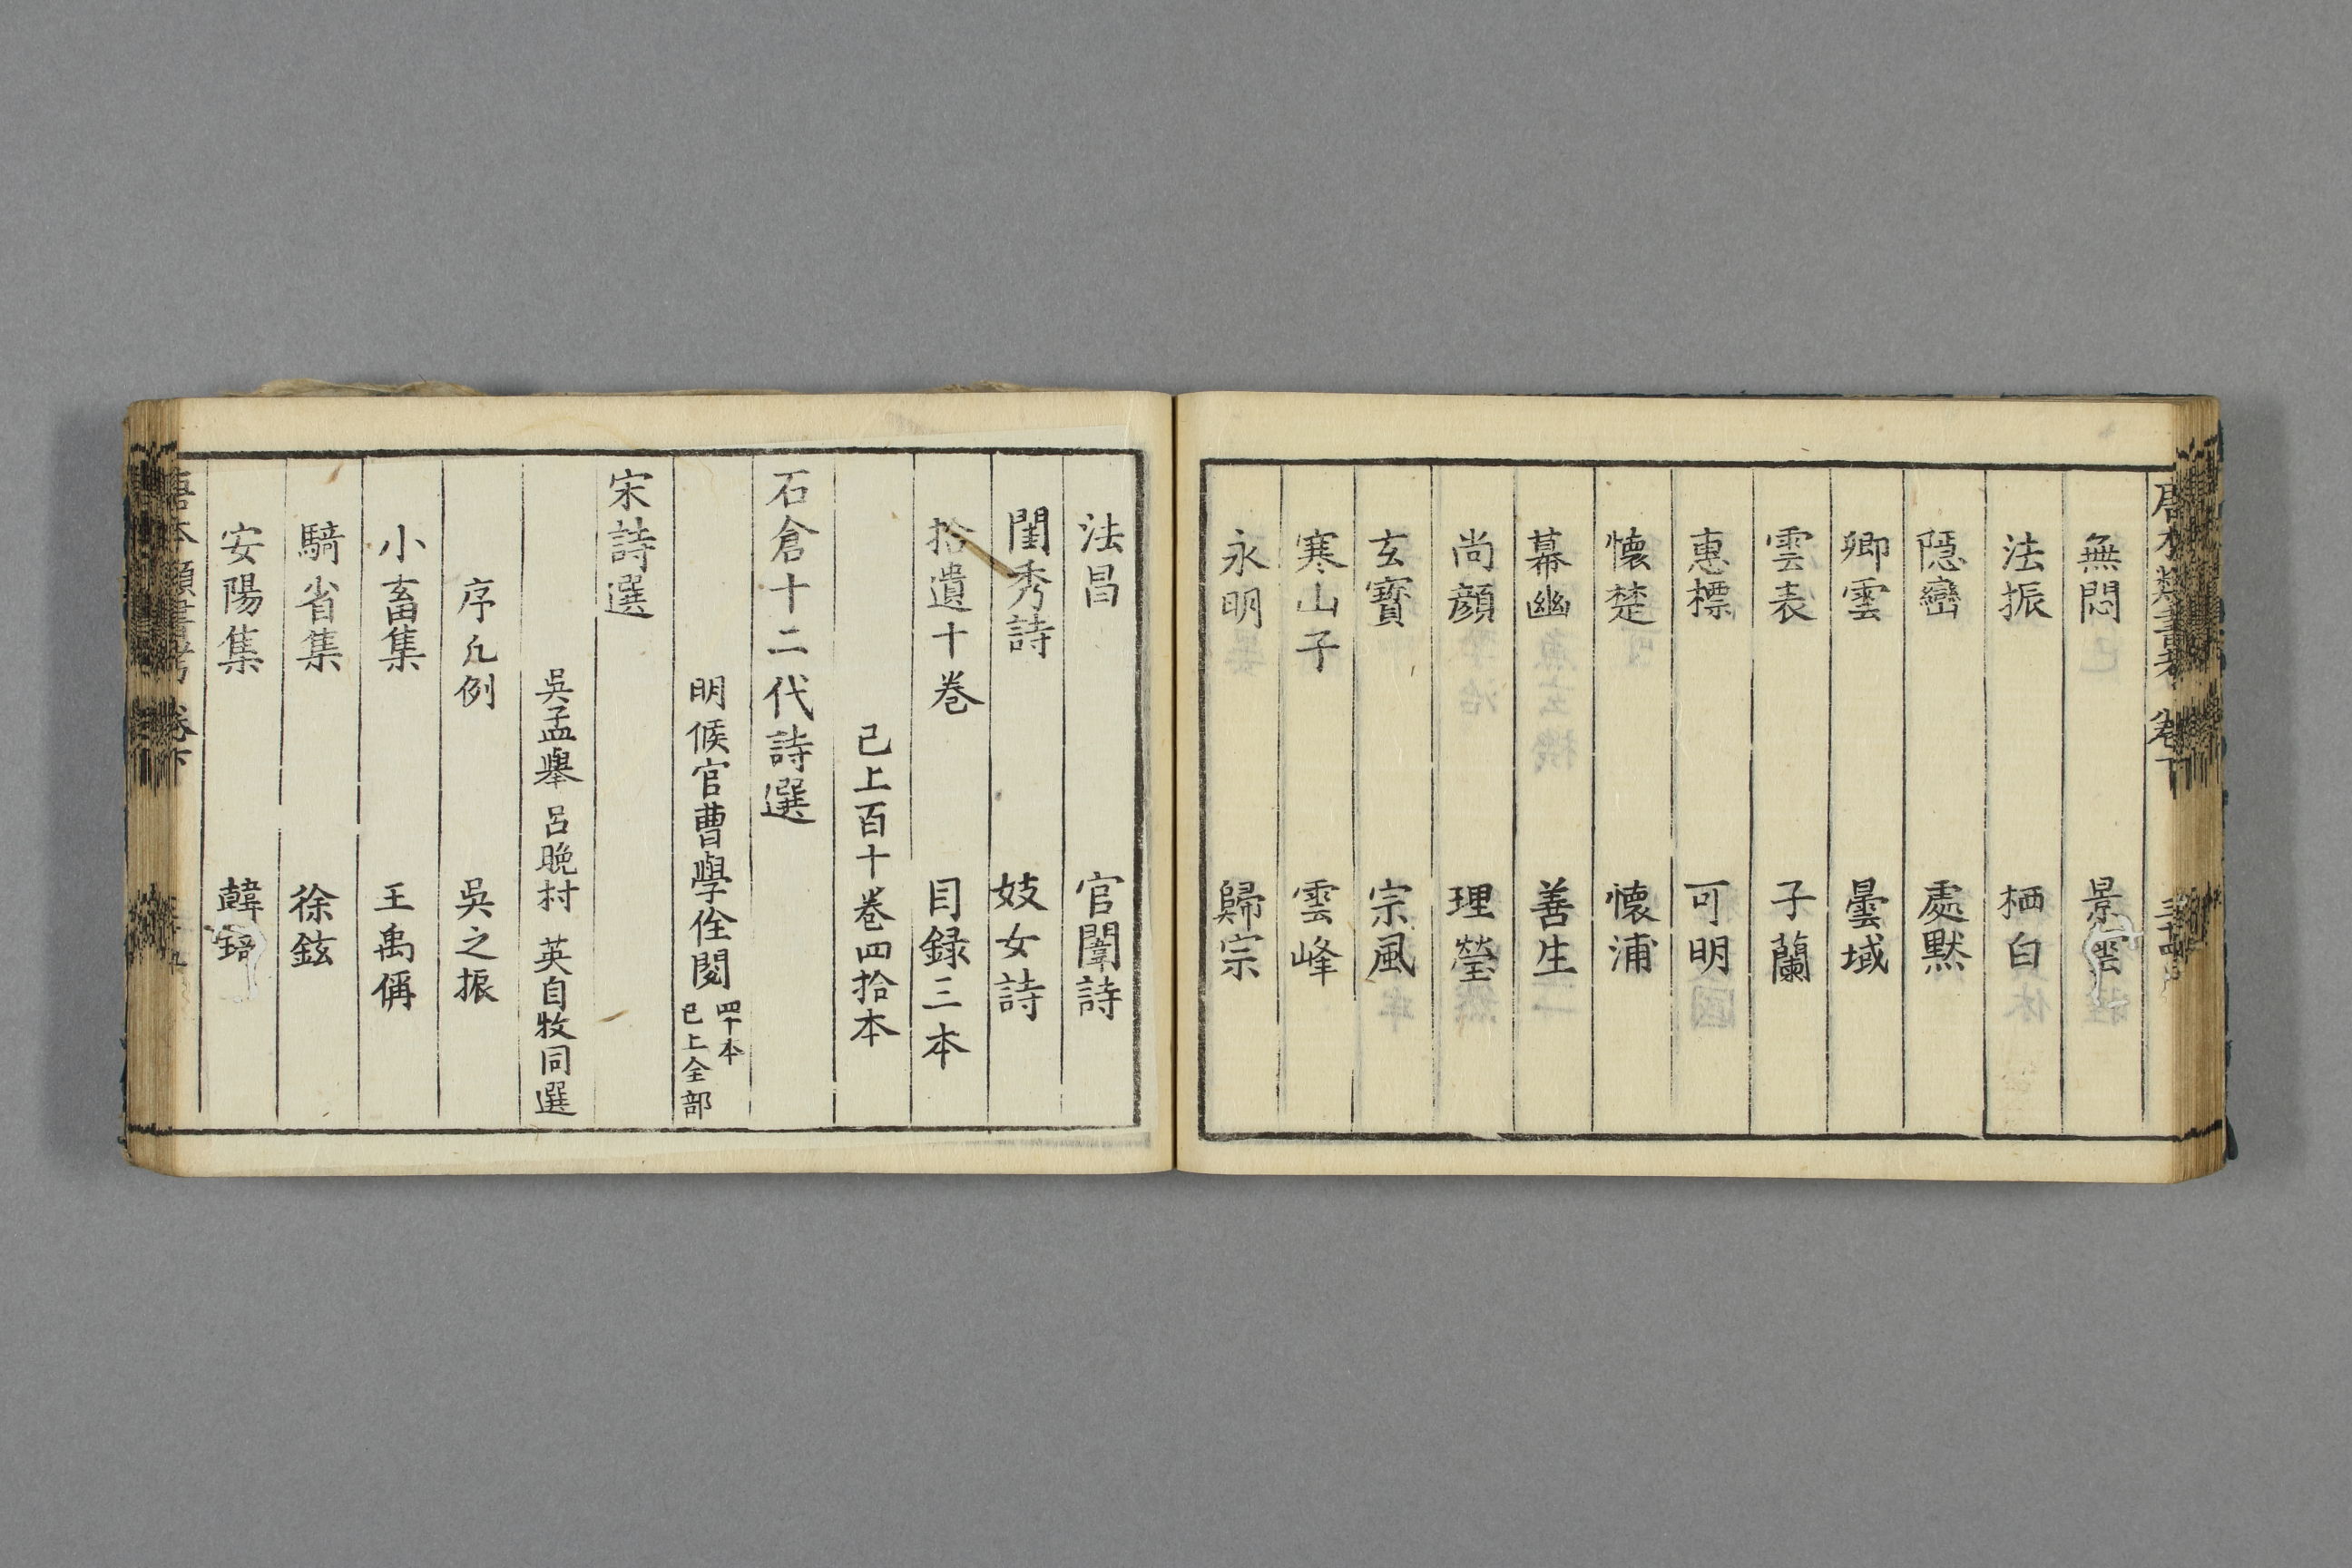 唐本類書考 卷下
無悶 景雲
法振 栖白
隠巒 處黙
卿雲 曇域
雲表 子蘭
惠標 可明
懐楚 懐浦
幕幽 善生
尚顔 理瑩
玄寶 宗風
寒山子 雲峰
永明 歸宗
法昌 官闈詩
閨秀詩 妓女詩
拾遺十巻 目録三本
已上百十巻四拾本
石倉十二代詩選
明候官曹學佺閲 四十本 已上全部
宋詩選
吳孟舉 呂晩村 英自牧同選
序凡例 吳之振
小畜集 王禹偁
騎省集 徐鉉
安陽集 韓琦
唐本類書考 卷下